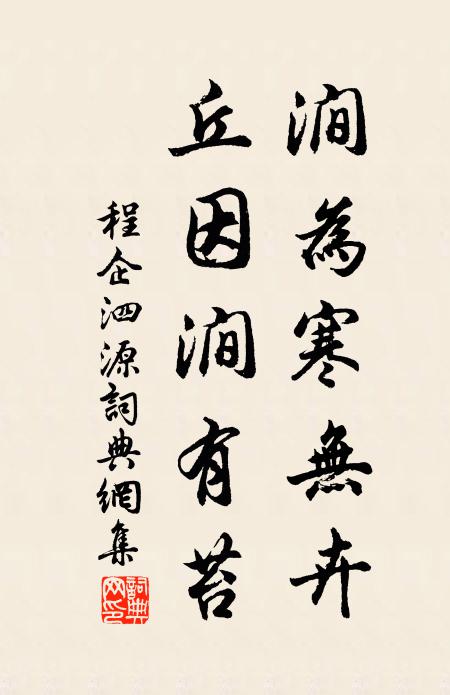 澗為寒無卉
丘因澗有苔
程企泗源詞典網集
詞典网印